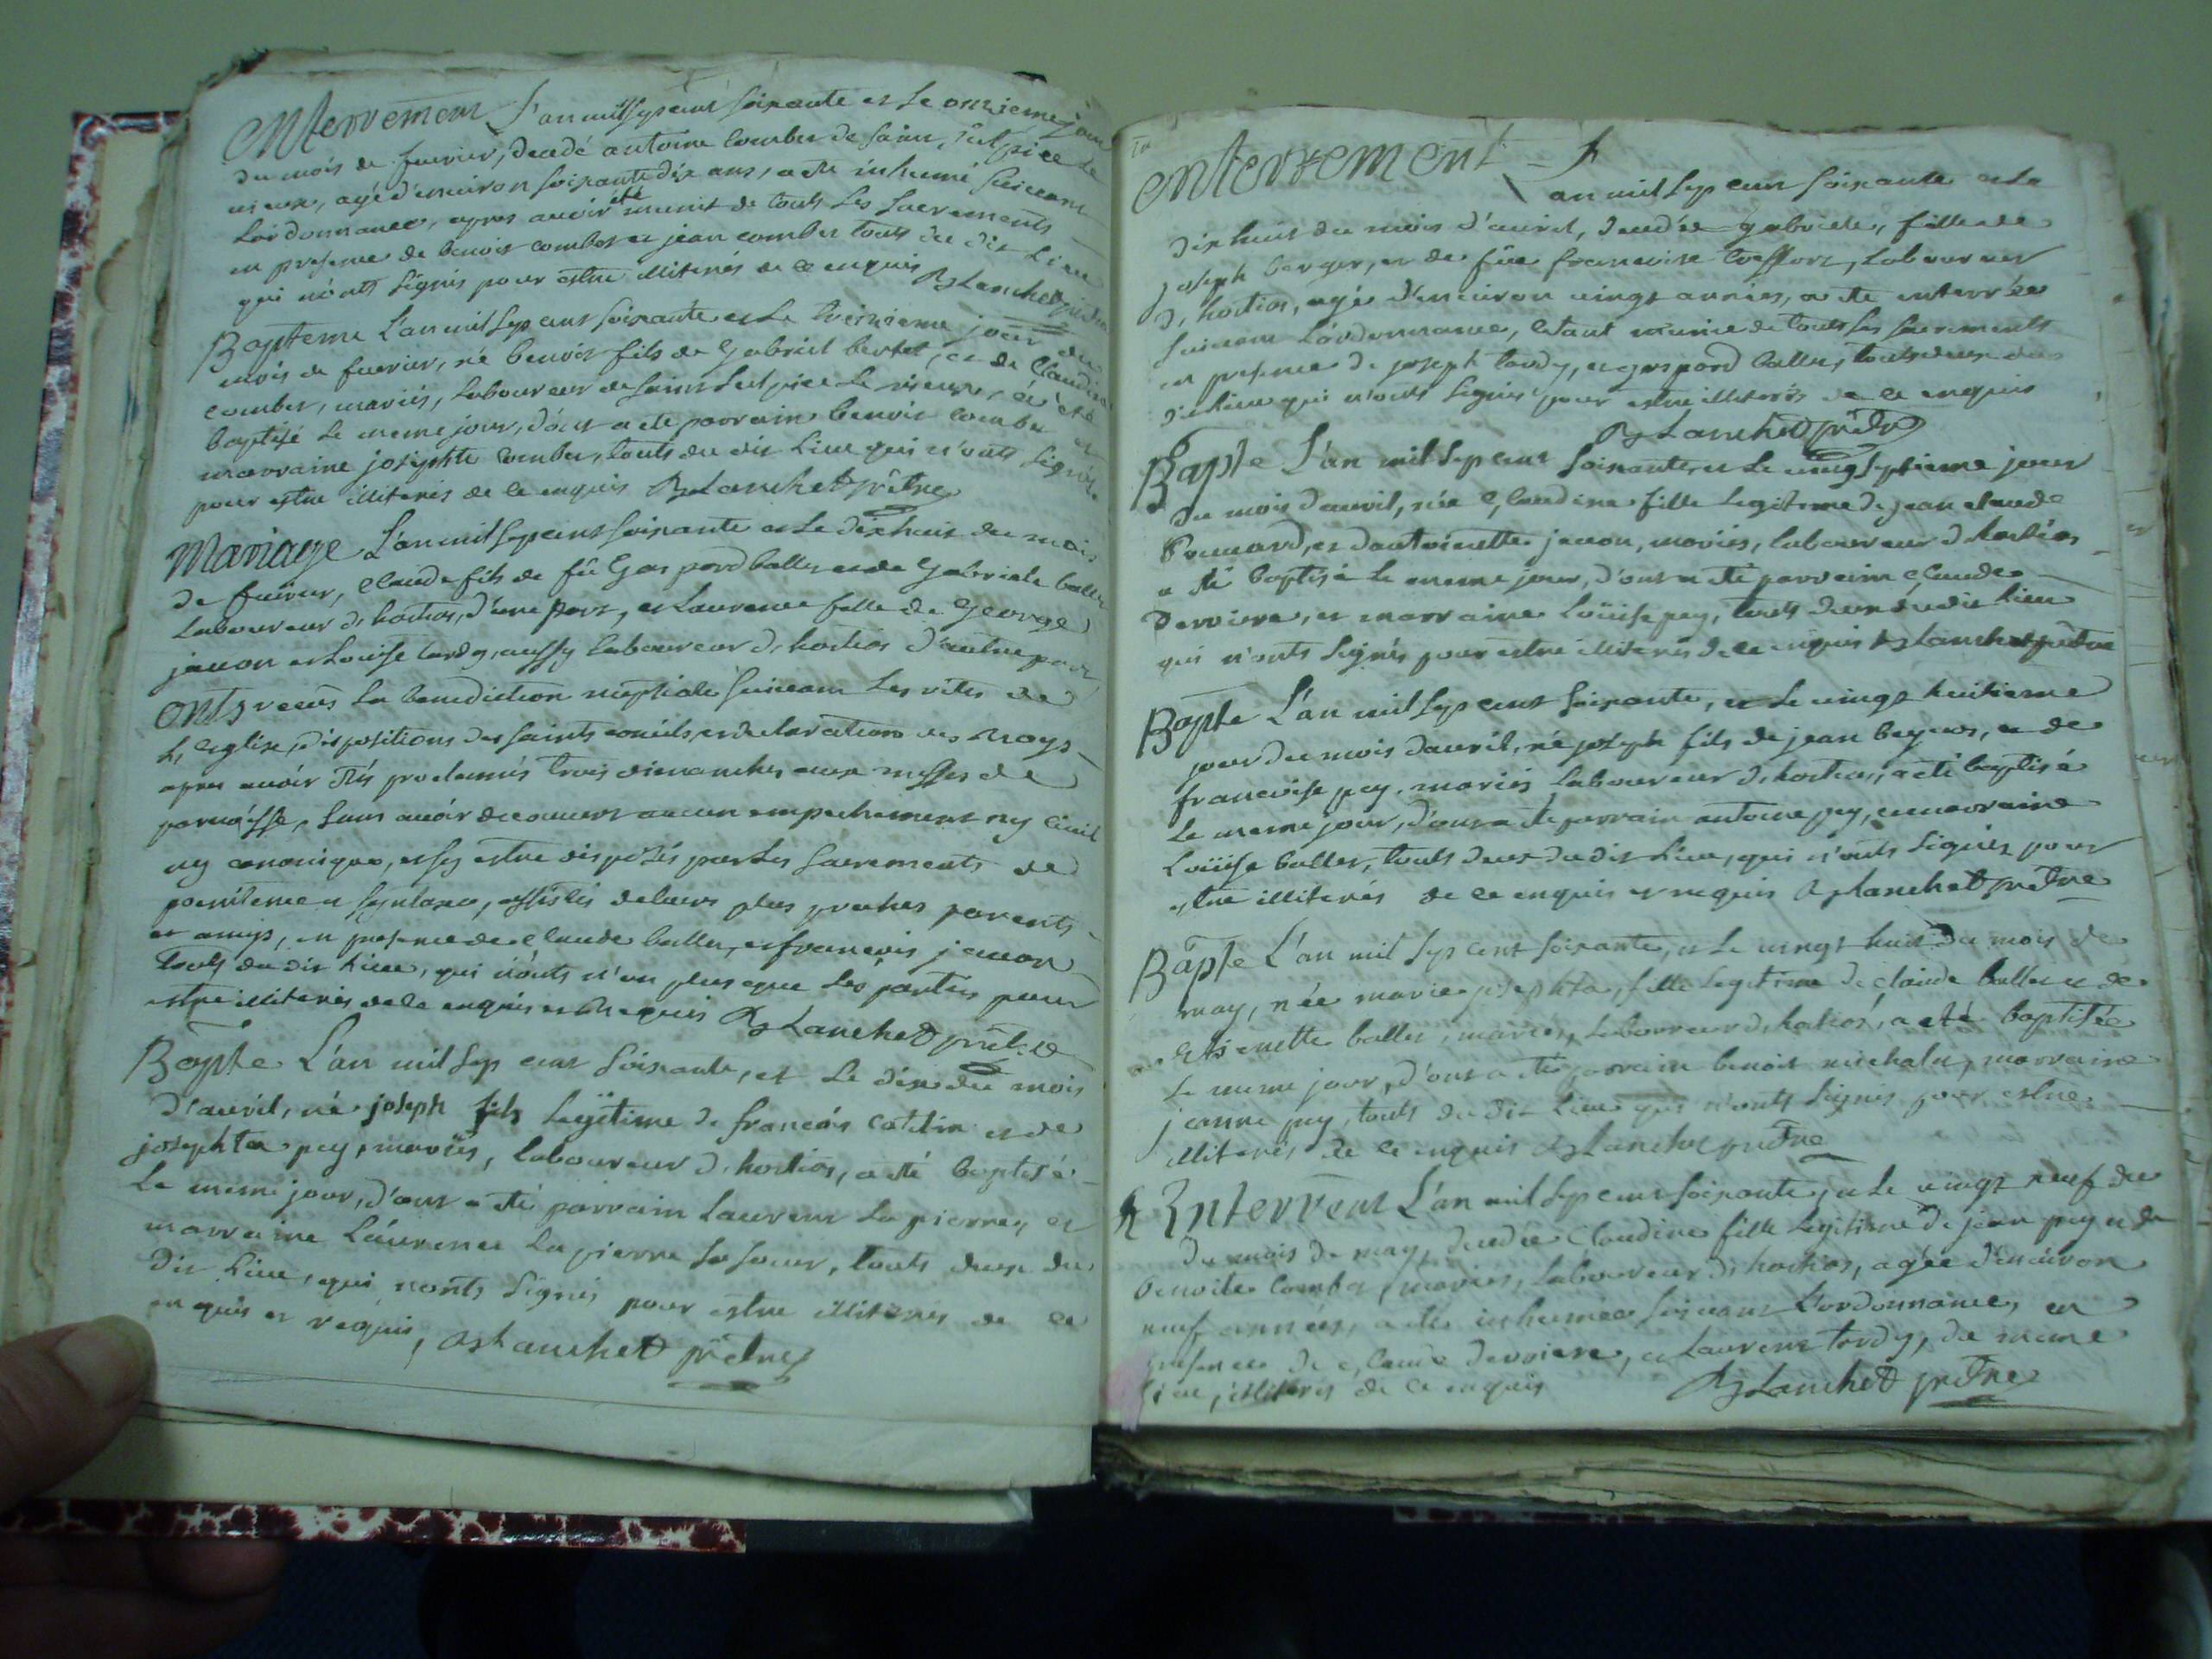 Enterrement L'an mil sept cent soixante et le onzieme jour
du mois de fuvrier, decedé antoine combet de saint sulpice le
vieux, agé d'environ soixante dix ans, a eté inhumé suivant
L'ordonnance, apres avoir été munit de touts les sacrements
en presence de benoit combet et jean combet touts du dit Lieu
qui n'onts signés pour estre illiterés de ce enquis Blanchet prêtre
Bapteme L'an mil sept cent soixante et le troisieme jour du
mois de fuvrier, né benoit fils de Gabriel bertet, et de Claudine
combet, mariés, Laboureur de saint sulpice le vieux, a eté
baptisé le meme jour, d'ont a eté parrain benoit combet et
marraine josephte combet, touts du dit Lieu qui n'onts signés
pour estre illiterés de ce enquis Blanchet prêtre
Mariage L'an mil sept cent soixante et le dixhuit du mois
de fuvrier, Claude fils de fû Gaspard ballet et de Gabriele ballet
Laboureur d'hostias, d'une part, et Laurence fille de George
janon et Louise tardy, aussy laboureur d'hostias d'autre part
Onts reçus la benediction nuptiale suivant les rites de
L'eglise, dispositions des saints conciles, et declarations des Roys
apres avoir étés proclamés trois dimanches aux messes de
parroisse, sans avoir decouvert aucun empechement ny civil
ny canonique, et sy estre disposés par les sacrements de
poenitence et synlaxes, assistés de leurs plus proches parents
et amys, en presence de claude ballet, et francois janon
touts du dit Lieu, qui n'onts n'on plus que les parties pour
estre illiterés de ce enquis et requis Blanchet prêtre
Bapte L'an mil sept cent soixante, et le dix du mois
d'avril, né joseph fils legitime de francois catelin et de
josephta pey, mariés, laboureur d'hostias, a eté baptisé
le meme jour, d'ont a eté parrain Laurent Lapierre, et
marraine Laurence Lapierre sa soeur, touts deux du
dit Lieu, qui n'onts signés pour estre illiterés de ce
enquis et requis, Blanchet prêtre
Enterrement L
an mil sept cent soixante et le
dixhuit du mois d'avril, decedée gabriele, fille de
joseph berger, et de fûe francoise treffort, Laboureur
d'hostias, agée d'environ vingt années, a eté enterrée
suivant L'ordonnance, etant munie de touts les sacrements
en presence de joseph tardy, et gaspard ballet, touts deux du
dit Lieu qui n'onts signés pour estre illiterés de ce enquis
Blanchet prêtre
Bapte L'an mil sept cent soixante, et le vingt septieme jour
du mois d'avril, née Claudine fille legitime de jean claude
Pommard, et d'antoinette janon, mariés, laboureur d'hostias
a eté baptisé le meme jour, d'ont a eté parrain Claude
Derriere, et marraine Loüise pey, touts deux du dit Lieu
qui n'onts signés pour estre illiterés de ce enquis Blanchet prêtre
Bapte L'an mil sept cent soixante, et le vingt huitieme
jour du mois d'avril, né joseph fils de jean et de
francoise pey, mariés laboureur d'hostias, a eté baptisé
le meme jour, d'ont a eté parrain antoine pey, et marraine
Loüise ballet, touts deux du dit Lieu, qui n'onts signés pour
estre illiterés de ce enquis et requis Blanchet prêtre
Bapte L'an mil sept cent soixante, et le vingt huit du mois de
may, née marie josephta, fille legitime de claude ballet et de
ballet, mariés, Laboureur d'hostias, a eté baptisée
le meme jour, d'ont a eté parrain benoit michalet, marraine
jeanne pey, touts du dit Lieu qui n'onts signés pour estre
illiterés de ce enquis Blanchet prêtre
Enterrent L'an mil sept cent soixante, et le vingt neuf du
du mois de may, decedée Claudine fille legitime de jean pey et de
benoite combet, mariés, laboureur d'hostias, agée d'environ
neuf années, a eté inhumée suivant L'ordonnance, en
presence de Claude Derriere, et Laurent tardy, du meme
Lieu, illiterés de ce enquis Blanchet prêtre